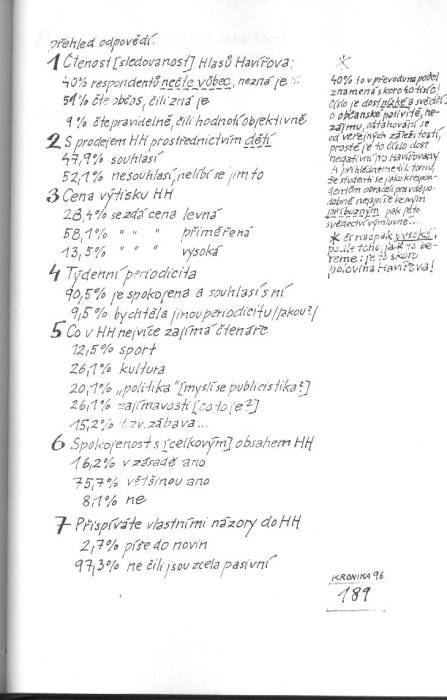 přehled odpovědí:
1 Čtenost [sledovanost] Hlasů Havířova:
40% respondentů nečte vůbec, nezná je *
51% čte občas, čili zná je
9% čte pravidelně, čili hodnotí objektivně
2 S prodejem HH prostřednictvím dětí
47,9% souhlasí
52,1% nesouhlasí, nelíbí se jim to
3 Cena výtisku HH
28,4% se zdá cena levná
58,1% " " " přiměřená
13,5% " " " vysoká
4 Týdenní periodicita
90,5% je spokojena a souhlasí s ní
9,5% by chtěla jinou periodicitu /jakou?/
5 Co v HH nejvíce zajímá čtenáře
12,5% sport
26,1% kultura
20,1% „politika" [myslí se publicistika?]
26,1% zajímavosti [co to je?]
15,2% tzv. zábava...
6 Spokojenost s [celkovým] obsahem HH
16,2% v zásadě ano
75,7% většinou ano
8,1% ne
7 Přispíváte vlastními názory do HH
2,7% píše do novin
97,3% ne čili jsou zcela pasivní
*
40% to v převodu na počet
znamená skoro 40 tisíc!
Číslo je dost nízké a svědčí
o občanské pasivitě, ne-
zájmu, odtahování se
od veřejných záležitostí,
prostě je to číslo dost
negativní pro Havířovany
A přihlédneme-li k tomu,
že studenti se jako k respon-
dentům obraceli pravděpo-
dobně nejspíše ke svým
příbuzným pak je to
svědectví výmluvné...
* či naopak vysoké,
podle toho, jak to be-
reme: je to skoro
polovina Havířova!
KRONIKA 96
189